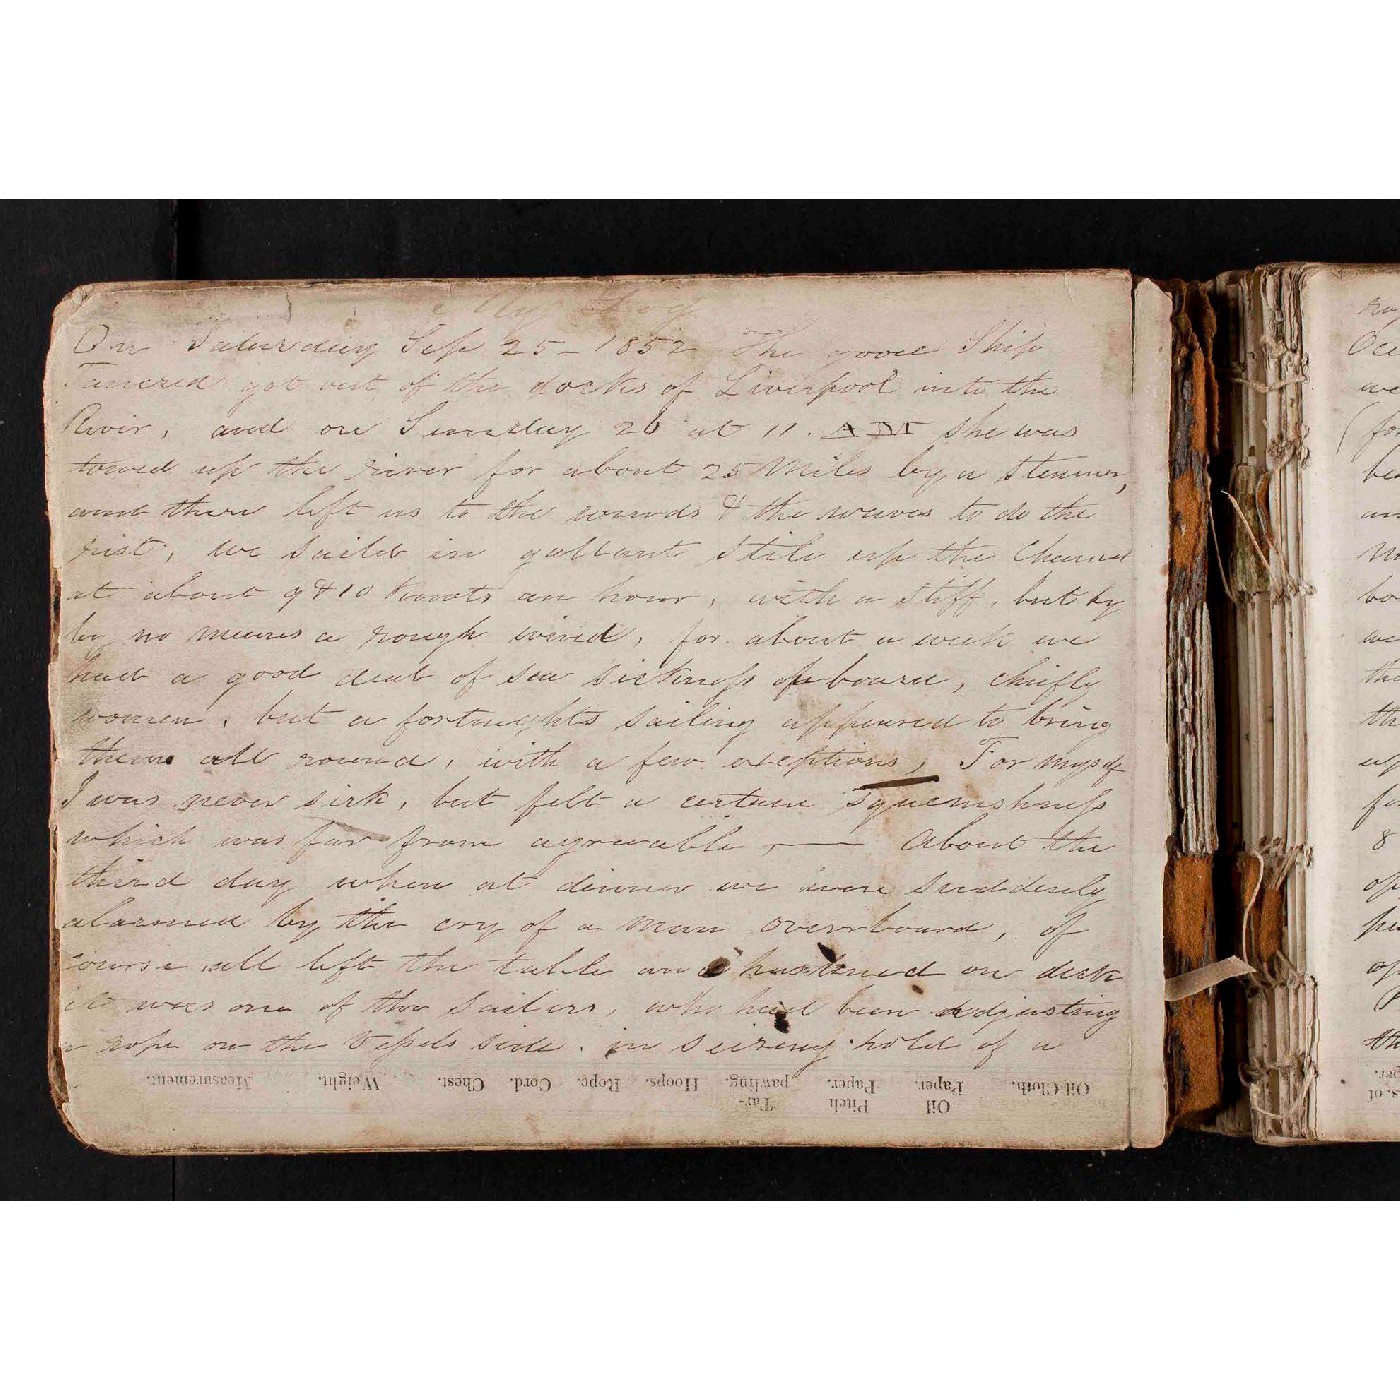 On Saturday Sep 25 - 1852 The good Ship
Tancred got out of the docks of Liverpool into the
River, and on Sunday 26 at 11. AM she was
towed up the river for about 25 Miles by a Steamer,
and then left us to the winds & the waves to do the
rest, we saild in gallant Stile up the Channel
at about 9 & 10 Knots an hour, with a Stiff, but by
by no means a rough wind, for about a week we
had a good deal of sea sickness on board, chiefly
women, but a fortnights sailing appeared to bring
them all round, with a few exceptions, For myself
I was never sick, but felt a certain squemishness
which was far from agreeable, — About the
third day when at dinner we were suddenly
alarmed by the cry of a man overboard, of
course all left the table and hastened on deck
it was one of the Sailors, who had been adjusting
a rope on the Vessels side. in seizing hold of a
Measurement. Weight. Chest. Cord. Rope. Hoops. Tar-pawling. Pitch Paper. Oil Paper. Oil Cloth.
Oce
we
(for
be
an
we
th
th
up
8
op
op
th